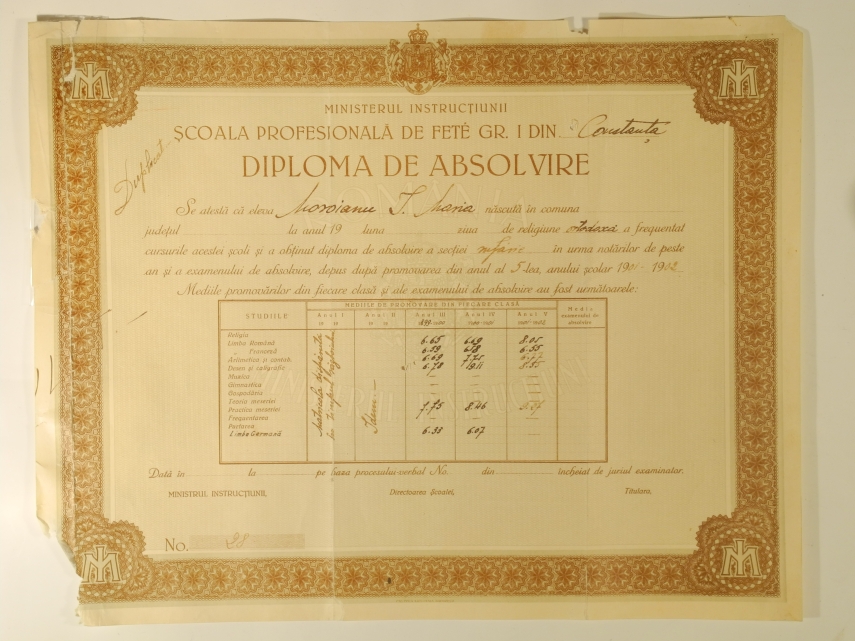 MINISTERUL INSTRUCȚIUNII
ȘCOALA PROFESIONALĂ DE FETE GR. I DIN Constanța
DIPLOMA DE ABSOLVIRE
Duplicat
Se atestă că eleva Moroianu I. Maria născută în comuna
județul la anul 19 luna ziua de religiune ortodoxă a frequentat
cursurile acestei școli și a obținut diploma de absolvire a secției în urma notărilor de peste
an și a examenului de absolvire, depus după promovarea din anul al 5-lea, anului școlar 1901-1902
Mediile promovărilor din fiecare clasă și ale examenului de absolvire au fost următoarele:
STUDIILE
MEDIILE DE PROMOVARE DIN FIECARE CLASĂ
Anul I Anul II Anul III Anul IV Anul V Media examenului de absolvire
19 19 19 19 1899-1900 1900-1901 1901-1902
Religia
Limba Română 6.65 6.69 8.05
„ Franceză 6.59 6.35
Aritmetica și contab. 6.69 7.75
Desen și caligrafie 6.70 8.35
Muzica — — —
Gimnastica — — —
Gospodăria
Teoria meseriei
Practica meseriei 7.75 8.46
Frequentarea
Purtarea
Limba Germană 6.33 6.07 —
Matricola
în timpul
Idem
Dată în la pe baza procesului-verbal No. din încheiat de juriul examinator.
MINISTRUL INSTRUCȚIUNII, Directoarea Școalei, Titulara,
No. 28